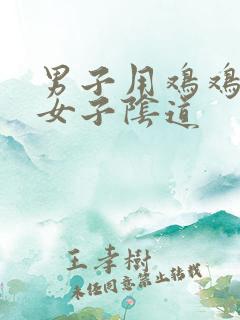 男子用鸡鸡
女子陰道
王孝樹
未经同意禁止转载